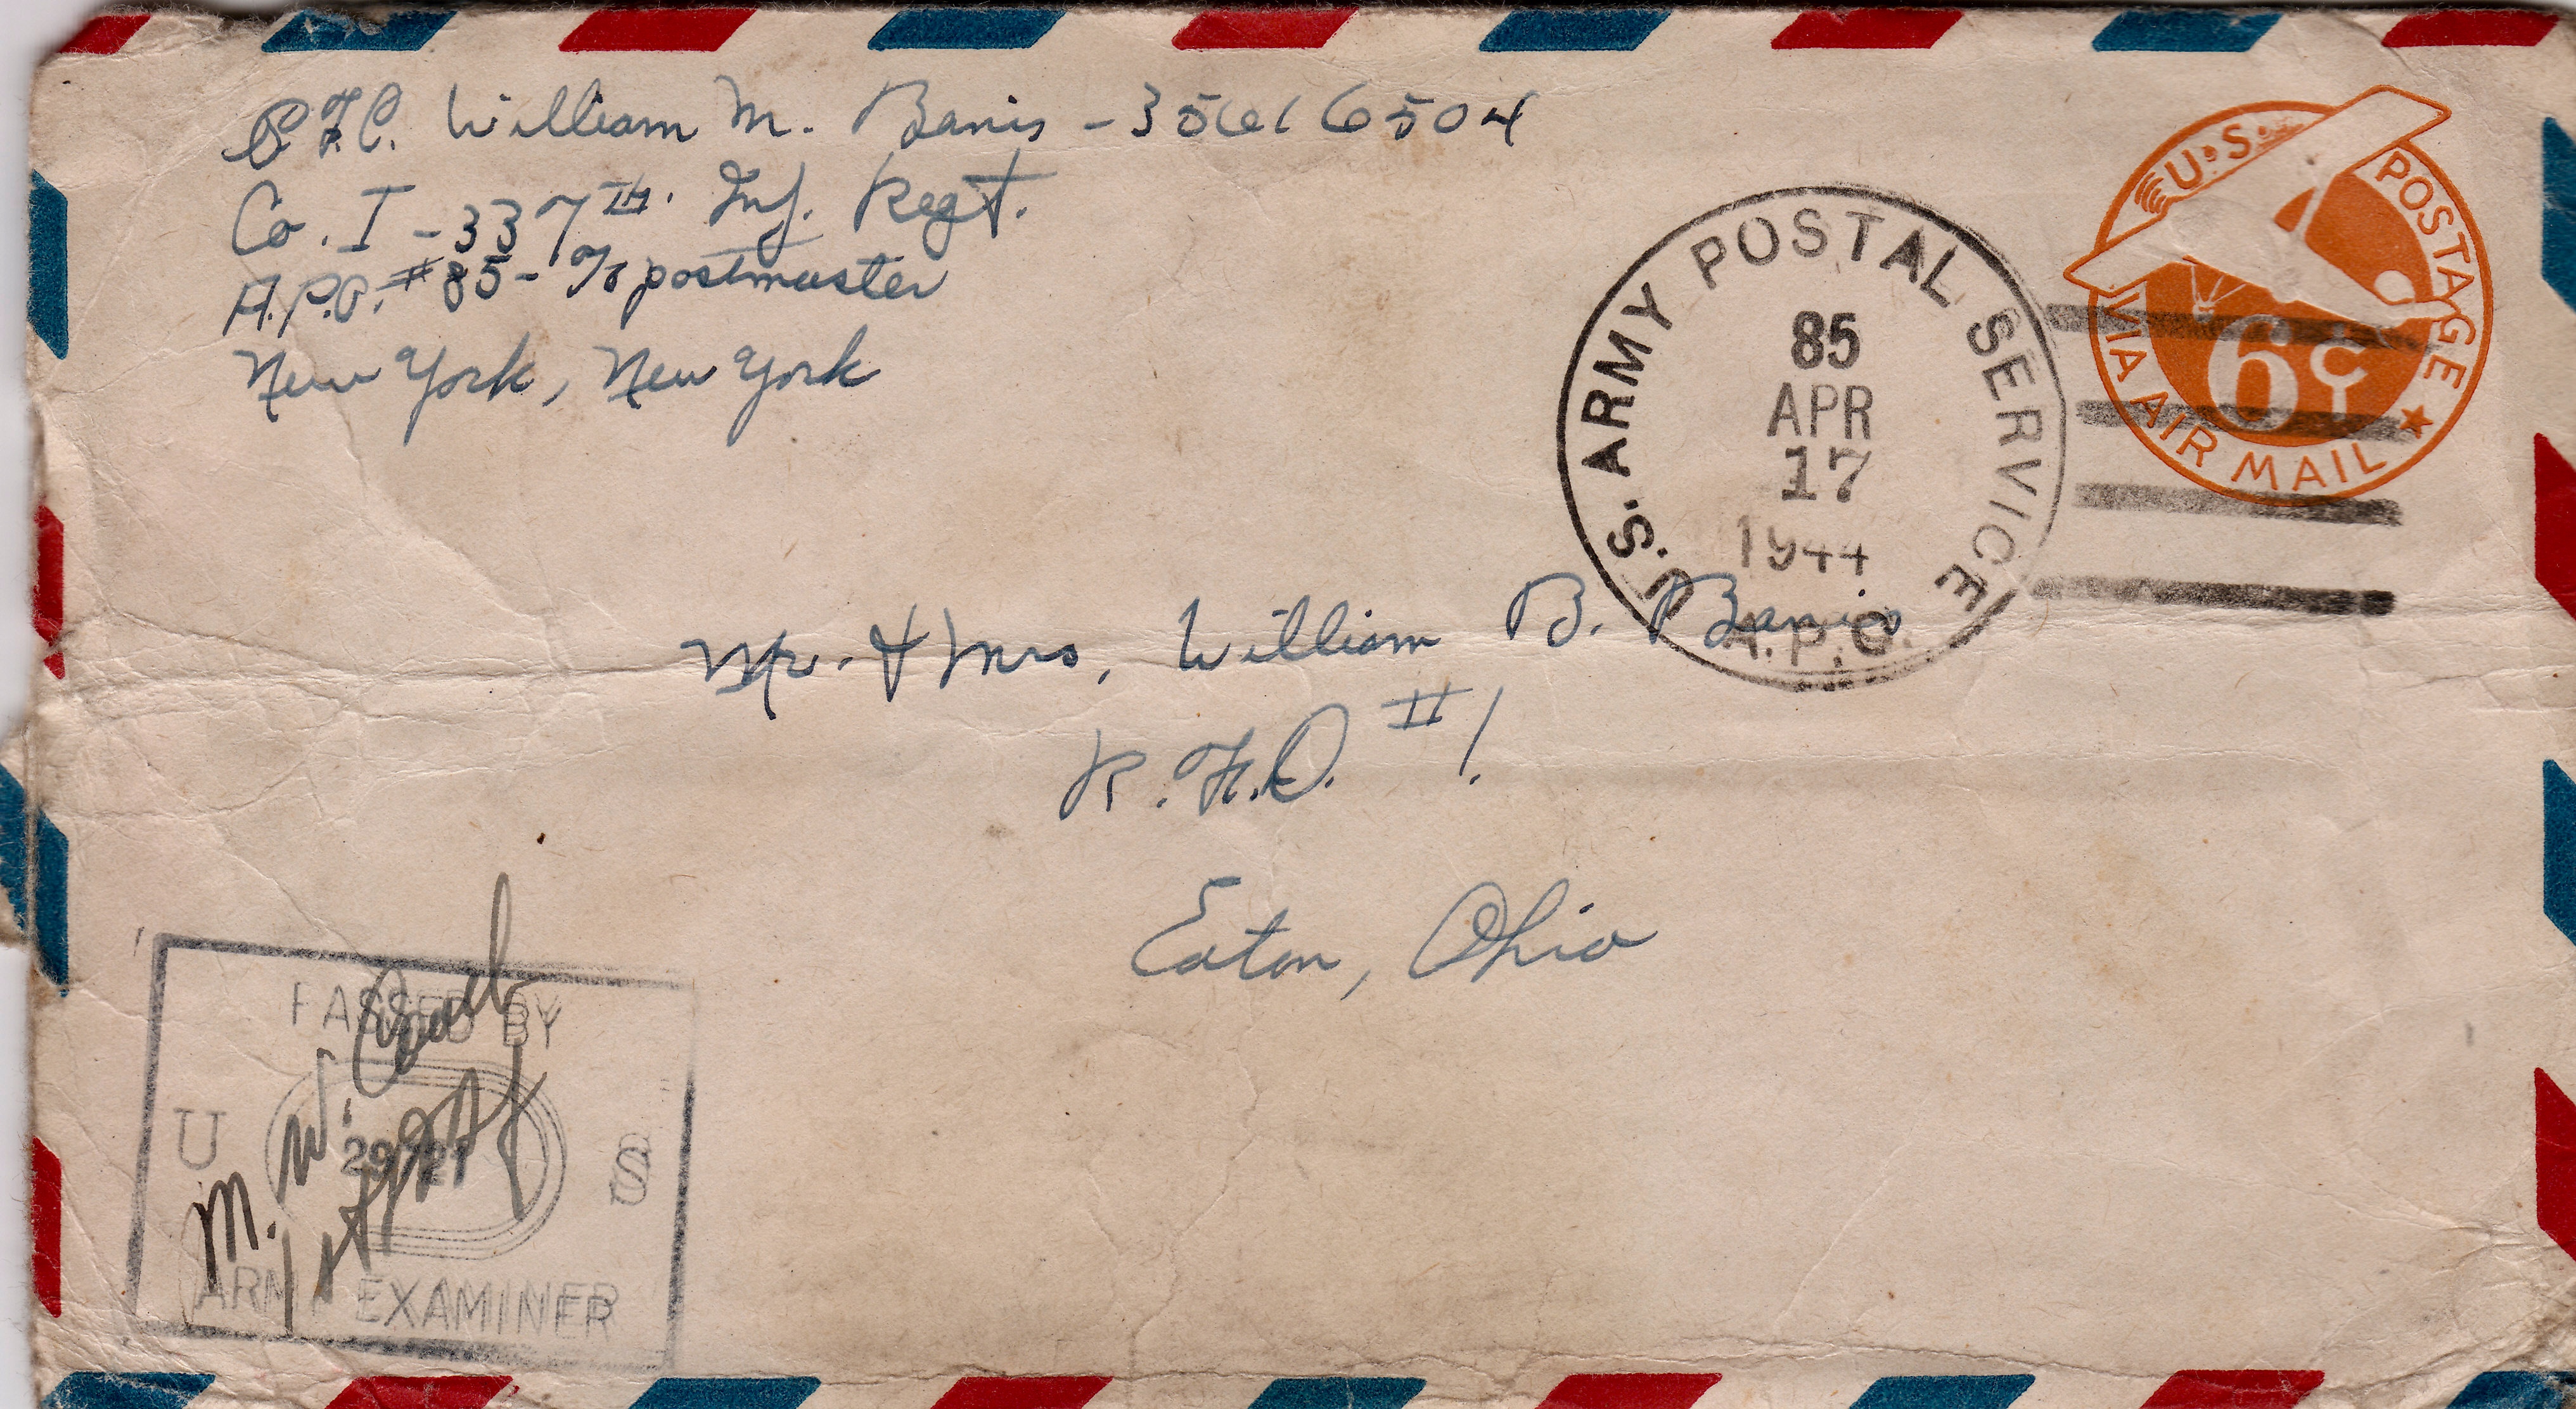 P.F.C. William M. Banis - 35616504
Co. I - 337TH. Inf. Regt.
A.P.O. #85 - % postmaster
New York, New York
U.S. POSTAGE
VIA AIR MAIL
6¢
U.S. ARMY POSTAL SERVICE
85
APR
17
1944
A.P.O.
Mr. & Mrs. William B. Banis
R.F.D. #1.
Eaton, Ohio
PASSED BY
U S
ARMY EXAMINER
M. W.
1st